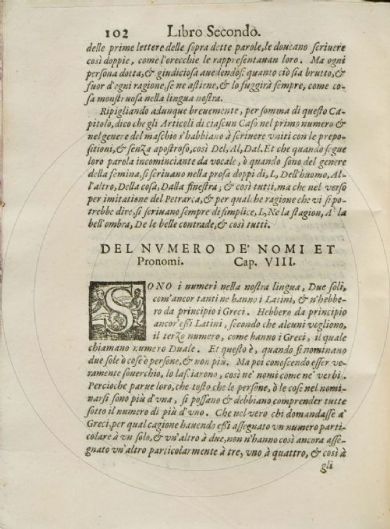 102 Libro Secondo.
delle prime lettere delle sopra dette parole, le doueano scriuere
così doppie, come l'orecchie le rappresentauan loro. Ma ogni
persona dotta, & giudiciosa auedendosi quanto ciò sia brutto, &
fuor d'ogni ragione, se ne astiene, & lo fuggirà sempre, come co-
sa monstruosa nella lingua nostra.
Ripigliando adunque breuemente, per somma di questo Ca-
pitolo, dico che gli Articoli di ciascun Caso nel primo numero &
nel genere del maschio s'habbiano à scriuere vniti con le prepo-
sitioni, & senza apostrofo, così Del, Al, Dal. Et che quando segue
loro parola incominciante da vocale, ò quando sono del genere
della femina, si scriuano nella prosa doppi di, L, Dell'huomo, Al-
l'altro, Della cosa, Dalla finestra; & così tutti, ma che nel verso
per imitatione del Petrarca, & per qualche ragione che vi si po-
trebbe dire, si scriuano sempre di simplice, L, Ne la stagion, A' la
bell'ombra, De le belle contrade, & così tutti.
DEL NVMERO DE' NOMI ET
Pronomi. Cap. VIII.
SONO i numeri nella nostra lingua, Due soli,
com'ancor tanti ne hanno i Latini, & n'hebbe-
ro da principio i Greci. Hebbero da principio
ancor'essi Latini, secondo che alcuni vogliono,
il terzo numero, come hanno i Greci, il quale
chiamano numero Duale. Et questo è, quando si nominano
due sole ò cose ò persone, & non più. Ma poi conoscendo esser ve-
ramente souerchio, lo lasciarono, così ne' nomi come ne' verbi.
Percioche parue loro, che tosto che le persone, ò le cose nel nomi-
narsi sono più d'vna, si possano & debbiano comprender tutte
sotto il numero di più d'vno. Che nel vero chi domandasse à
Greci, per qual cagione hauendo essi assegnato vn numero parti-
colare à vn solo, & vn'altro à due, non n'hanno così ancora asse-
gnato vn'altro particolarmente à tre, vno à quattro, & così à
gli